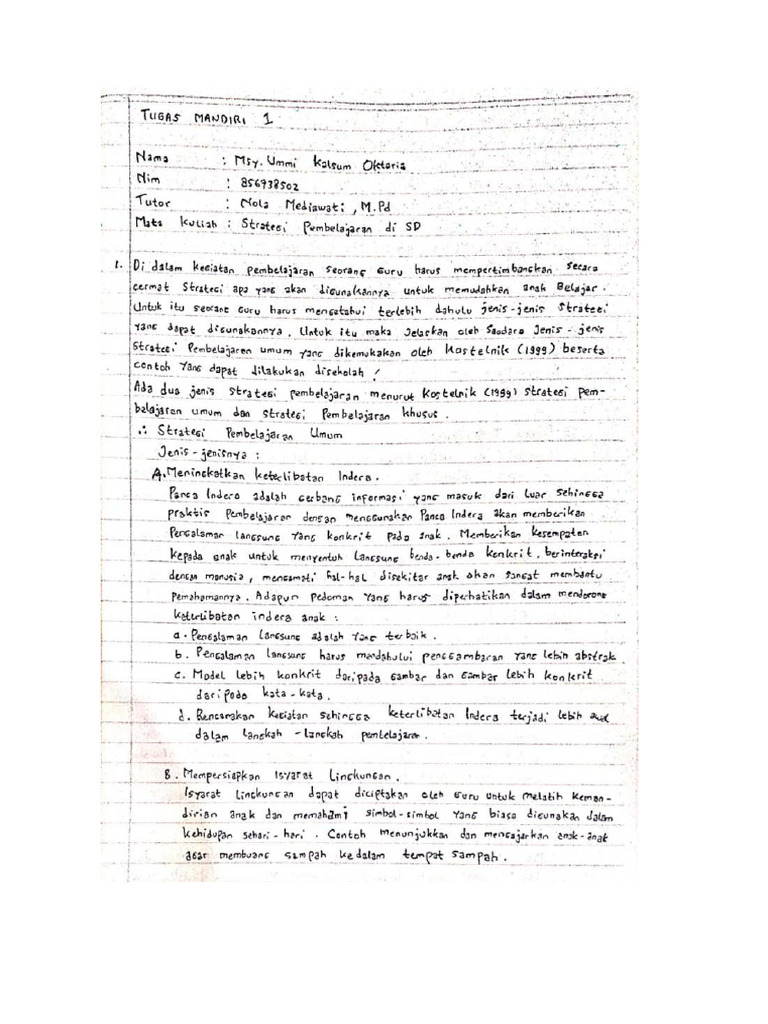 TUGAS MANDIRI 1
Nama : Msy. Ummi Kalsum Oktaria
Nim : 856738502
Tutor : Nola Mediawati, M.Pd
Mata Kuliah : Strategi Pembelajaran di SD
1. Di dalam kegiatan pembelajaran seorang Guru harus mempertimbangkan secara
cermat strategi apa yang akan digunakannya untuk memudahkan anak Belajar.
Untuk itu seorang Guru harus mengetahui terlebih dahulu jenis-jenis Strategi
yang dapat digunakannya. Untuk itu maka Jelaskan oleh Saudara Jenis-jenis
Strategi Pembelajaran umum yang dikemukakan oleh Kostelnik (1999) beserta
contoh yang dapat dilakukan disekolah!
Ada dua jenis strategi pembelajaran menurut Kostelnik (1999) strategi pem-
belajaran umum dan strategi Pembelajaran khusus.
∴ Strategi Pembelajaran Umum
Jenis-jenisnya :
A. Meningkatkan keterlibatan Indera.
Panca Indera adalah gerbang informasi yang masuk dari luar sehingga
praktis Pembelajaran dengan menggunakan Panca Indera akan memberikan
Pengalaman langsung yang konkrit pada anak. Memberikan kesempatan
kepada anak untuk menyentuh langsung benda-benda konkrit, berinteraksi
dengan manusia, mengamati hal-hal disekitar anak akan sangat membantu
pemahamannya. Adapun pedoman yang harus diperhatikan dalam mendorong
keterlibatan indera anak :
a. Pengalaman langsung adalah yang terbaik.
b. Pengalaman langsung harus mendahului penggambaran yang lebih abstrak.
c. Model lebih konkrit daripada gambar dan gambar lebih konkrit
daripada kata-kata.
d. Rencanakan kegiatan sehingga keterlibatan Indera terjadi lebih awal
dalam langkah-langkah pembelajaran.
B. Mempersiapkan Isyarat Lingkungan.
Isyarat lingkungan dapat diciptakan oleh Guru untuk melatih keman-
dirian anak dan memahami simbol-simbol yang biasa digunakan dalam
kehidupan sehari-hari. Contoh menunjukkan dan mengajarkan anak-anak
agar membuang sampah kedalam tempat sampah.